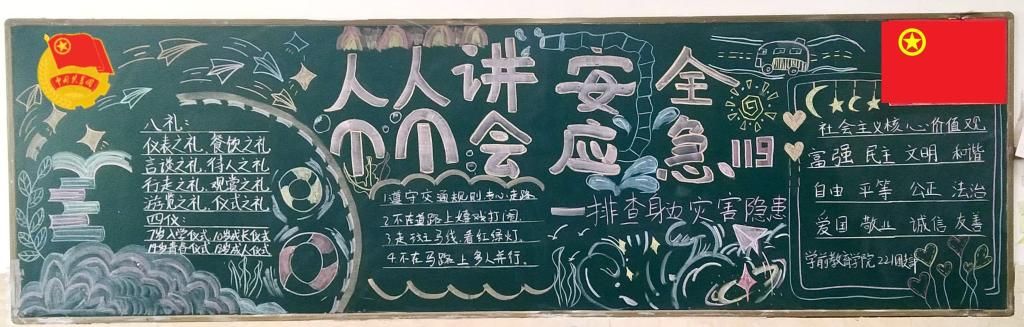 中国共青团
八礼：
仪表之礼，餐饮之礼
言谈之礼，待人之礼
行走之礼，观赏之礼
游览之礼，仪式之礼
四仪：
7岁入学仪式，10岁成长仪式
14岁青春仪式，18岁成人仪式
人人讲安全
个个会应急
119
1.遵守交通规则
2.不在道路上嬉戏打闹.
3.走斑马线,看红绿灯.
4.不在马路上多人并行.
一排查身边灾害隐患
社会主义核心价值观
富强 民主 文明 和谐
自由 平等 公正 法治
爱国 敬业 诚信 友善
学前教育学院